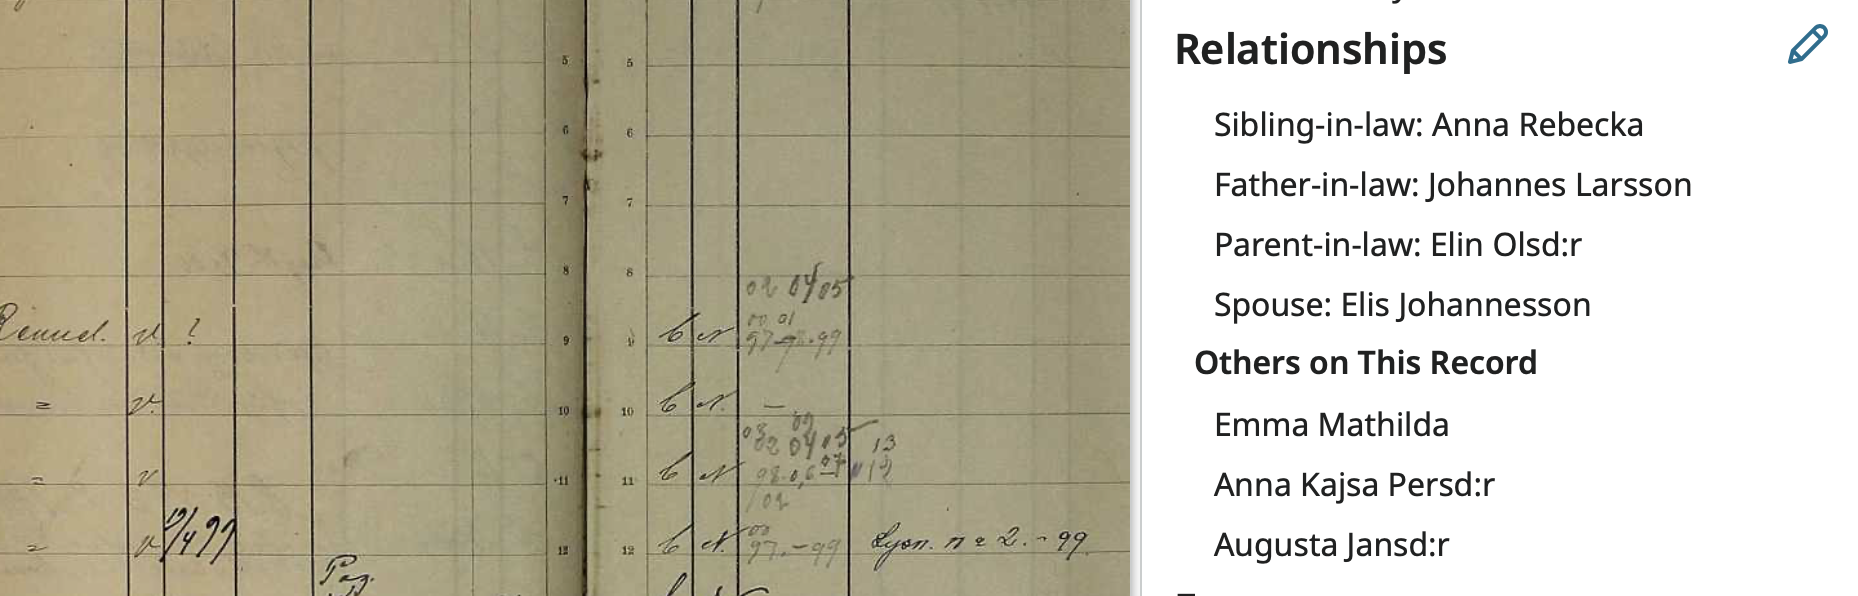 5 5
6 6
7 7
8 8
02 04 05
00 01
v ? 9 b N 97 99
= v. 10 b N. —
02 04 05 13
= v 11 11 b N 98
02
= v 19/4 99 12 12 b N. 97.-99 Lysn. n = 2. - 99.
Pag.
Relationships
Sibling-in-law: Anna Rebecka
Father-in-law: Johannes Larsson
Parent-in-law: Elin Olsd:r
Spouse: Elis Johannesson
Others on This Record
Emma Mathilda
Anna Kajsa Persd:r
Augusta Jansd:r